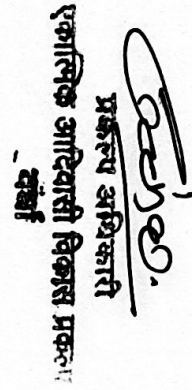 प्रकल्प अधिकारी
एकात्मिक आदिवासी विकास प्रकल्प
वर्धा